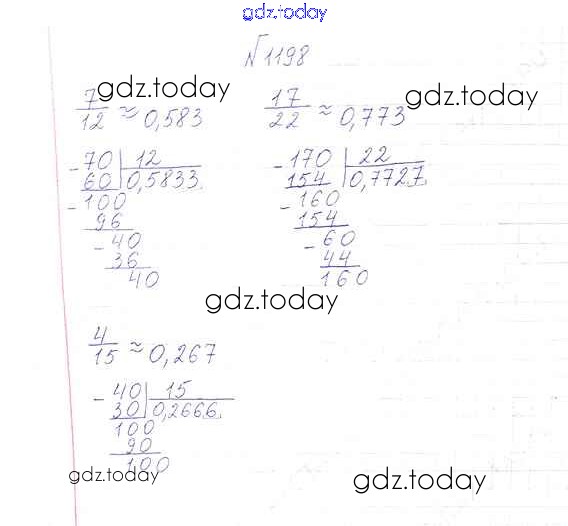 gdz.today
№1198
gdz.today gdz.today
7/12 ≈ 0,583 17/22 ≈ 0,773
- 70 | 12 - 170 | 22
60 | 0,5833.. 154 | 0,7727..
- 100 - 160
96 154
- 40 - 60
36 44
40 160
gdz.today
4/15 ≈ 0,267
- 40 | 15
30 | 0,2666..
100
90
100
gdz.today gdz.today